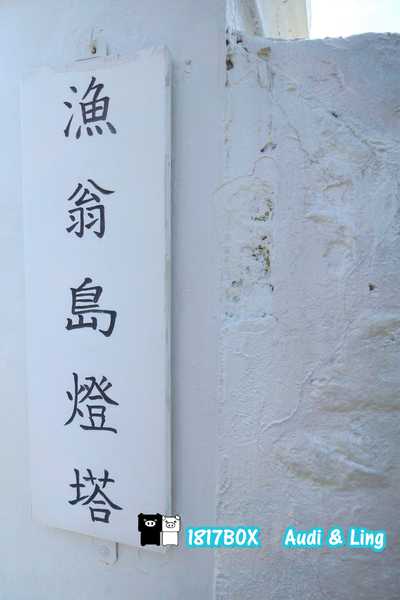 漁翁島燈塔
1817BOX Audi & Ling